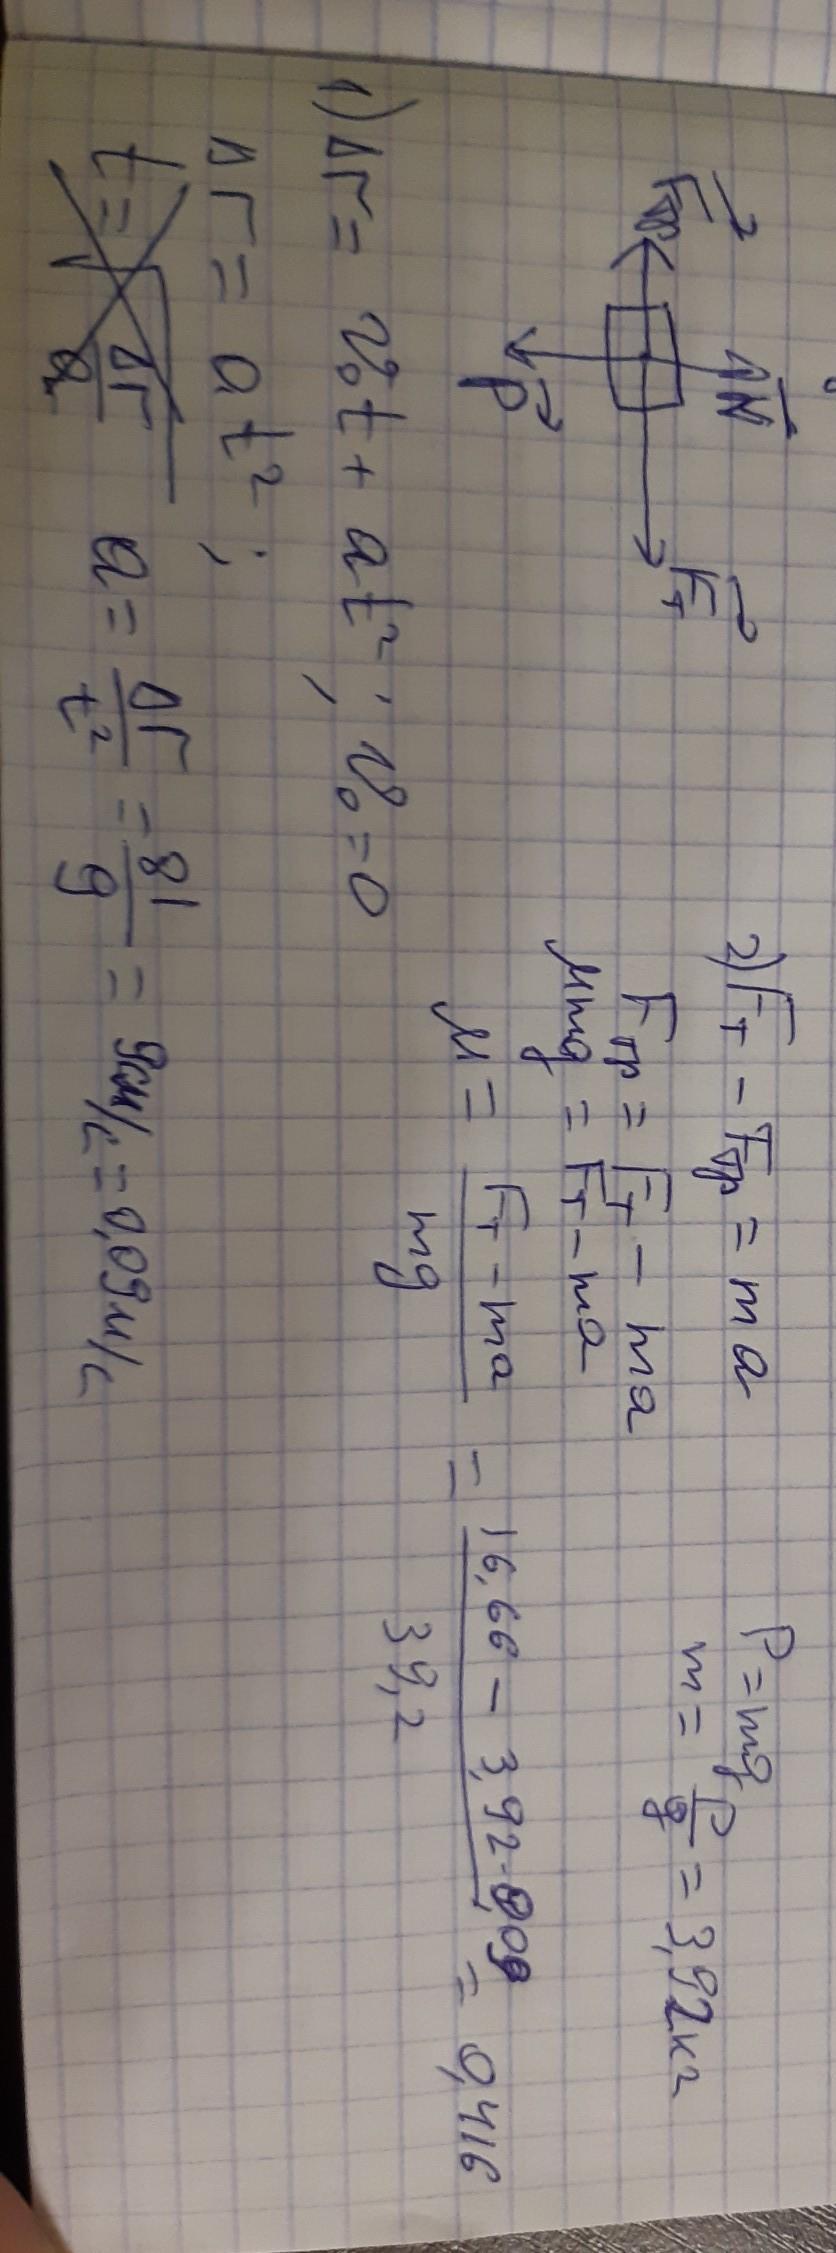 N
Fтр
Fт
P
1) Δr = v₀t + at²; v₀ = 0
Δr = at²;
t = √Δr/a
a = Δr/t² = 81/9 = 9см/с = 0,09м/с
2) Fт - Fтр = ma
Fтр = Fт - ma
μmg = Fт - ma
μ = Fт - ma/mg = 16,66 - 3,92·0,09/39,2 = 0,416
P = mg
m = P/g = 3,92кг